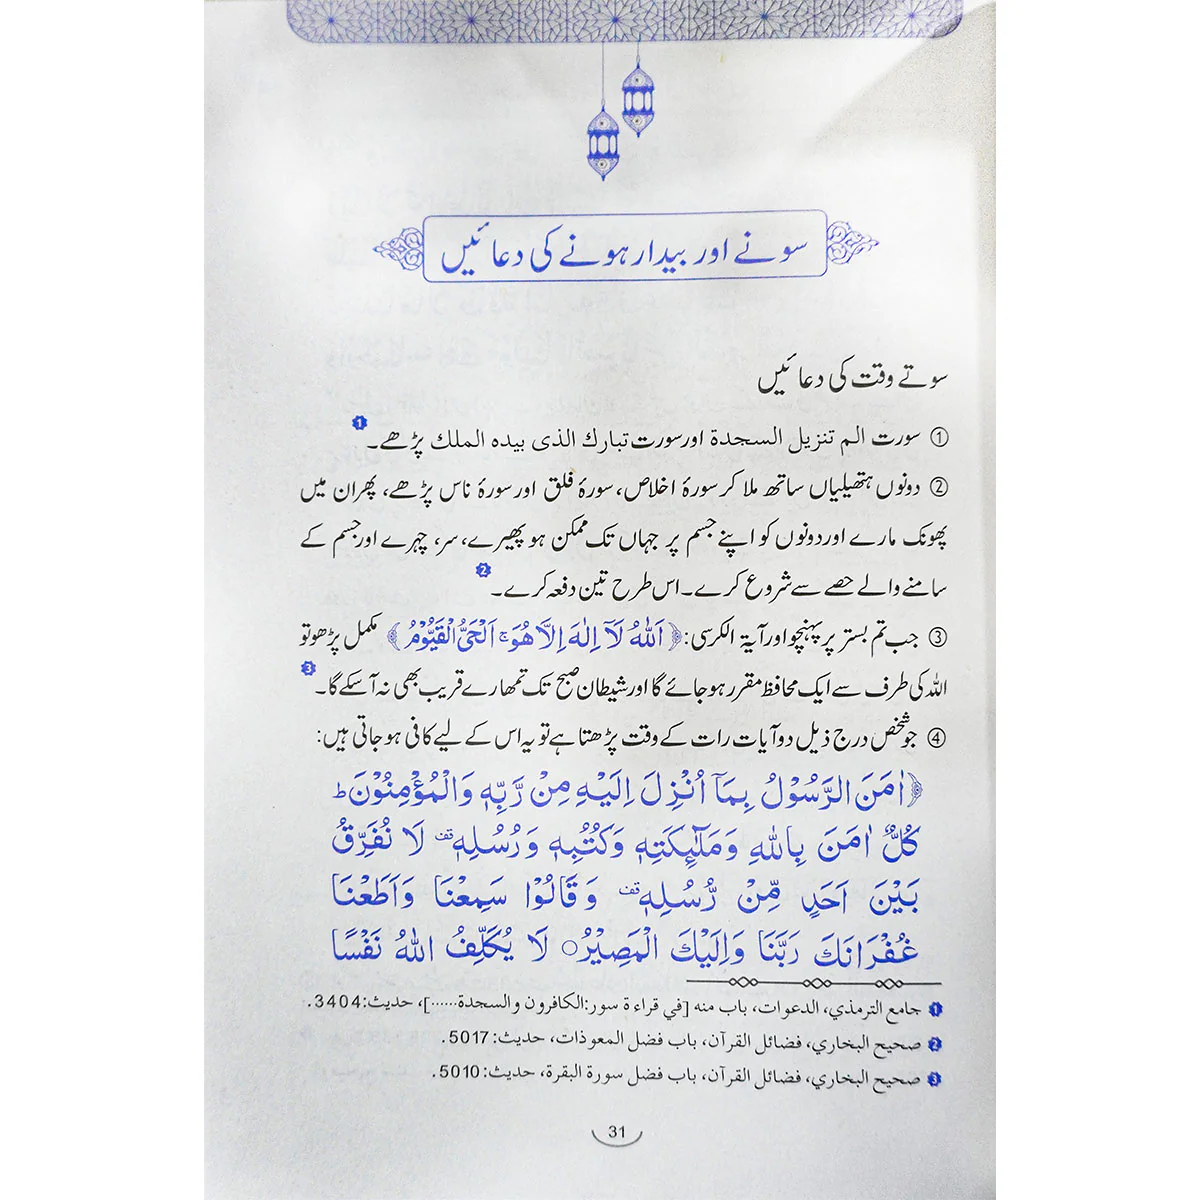 سونے اور بیدار ہونے کی دعائیں
سوتے وقت کی دعائیں
① سورت الم تنزیل السجدة اور سورت تبارك الذی بیده الملك پڑھے۔ 1
② دونوں ہتھیلیاں ساتھ ملا کر سورۂ اخلاص، سورۂ فلق اور سورۂ ناس پڑھے، پھر ان میں
پھونک مارے اور دونوں کو اپنے جسم پر جہاں تک ممکن ہو پھیرے، سر، چہرے اور جسم کے
سامنے والے حصے سے شروع کرے۔ اس طرح تین دفعہ کرے۔ 2
③ جب تم بستر پر پہنچو اور آیۃ الکرسی: ﴿اَللّٰهُ لَاۤ اِلٰهَ اِلَّا هُوَ ۚ اَلْحَیُّ الْقَیُّوْمُ﴾ مکمل پڑھو تو
اللہ کی طرف سے ایک محافظ مقرر ہو جائے گا اور شیطان صبح تک تمھارے قریب بھی نہ آ سکے گا۔ 3
④ جو شخص درج ذیل دو آیات رات کے وقت پڑھتا ہے تو یہ اس کے لیے کافی ہو جاتی ہیں:
﴿اٰمَنَ الرَّسُوْلُ بِمَاۤ اُنْزِلَ اِلَیْهِ مِنْ رَّبِّهٖ وَالْمُؤْمِنُوْنَ ؕ
كُلٌّ اٰمَنَ بِاللّٰهِ وَمَلٰٓئِكَتِهٖ وَكُتُبِهٖ وَرُسُلِهٖ ۫ لَا نُفَرِّقُ
بَیْنَ اَحَدٍ مِّنْ رُّسُلِهٖ ۫ وَقَالُوْا سَمِعْنَا وَاَطَعْنَا
غُفْرَانَكَ رَبَّنَا وَاِلَیْكَ الْمَصِیْرُ۝ لَا یُكَلِّفُ اللّٰهُ نَفْسًا
1 جامع الترمذي، الدعوات، باب منه [في قراءة سور: الكافرون والسجدة......]، حدیث: 3404.
2 صحيح البخاري، فضائل القرآن، باب فضل المعوذات، حدیث: 5017.
3 صحيح البخاري، فضائل القرآن، باب فضل سورة البقرة، حدیث: 5010.
31